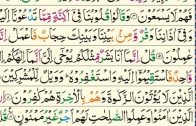 فَهُمْ لَا يَسْمَعُونَ ۝ وَقَالُوا قُلُوبُنَا فِي أَكِنَّةٍ مِّمَّا تَدْعُونَا إِلَيْهِ
وَفِي آذَانِنَا وَقْرٌ وَمِن بَيْنِنَا وَبَيْنِكَ حِجَابٌ فَاعْمَلْ إِنَّنَا
عَامِلُونَ ۝ قُلْ إِنَّمَا أَنَا بَشَرٌ مِّثْلُكُمْ يُوحَىٰ إِلَيَّ أَنَّمَا إِلَٰهُكُمْ إِلَٰهٌ
وَاحِدٌ فَاسْتَقِيمُوا إِلَيْهِ وَاسْتَغْفِرُوهُ وَوَيْلٌ لِّلْمُشْرِكِينَ
الَّذِينَ لَا يُؤْتُونَ الزَّكَاةَ وَهُم بِالْآخِرَةِ هُمْ كَافِرُونَ ۝ إِنَّ
الَّذِينَ آمَنُوا وَعَمِلُوا الصَّالِحَاتِ لَهُمْ أَجْرٌ غَيْرُ مَمْنُونٍ